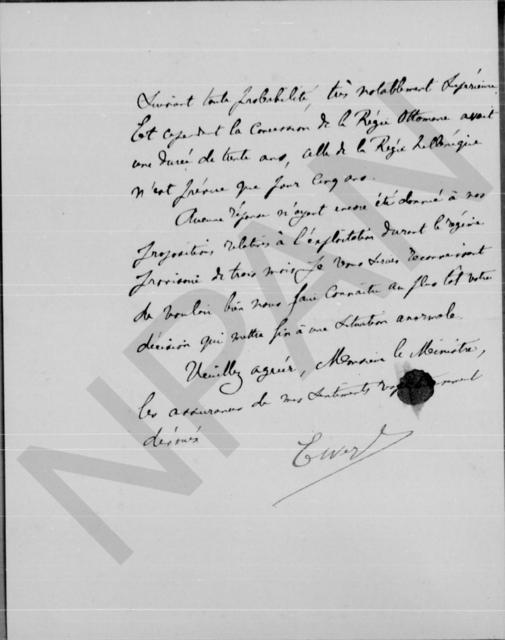 Suivant toute probabilité, très notablement supérieure.
Et cependant la Concession de la Régie Ottomane avait
une durée de trente ans, celle de la Régie hellénique
n'est prévue que pour cinq ans.
Aucune réponse n'ayant encore été donnée à nos
propositions relatives à l'exploitation durant le régime
provisoire de trois mois, je vous serais reconnaissant
de vouloir bien nous faire connaître au plus tôt votre
décision qui mettra fin à une situation anormale.
Veuillez agréer, Monsieur le Ministre,
les assurances de mes sentiments
dévoués
NPAN